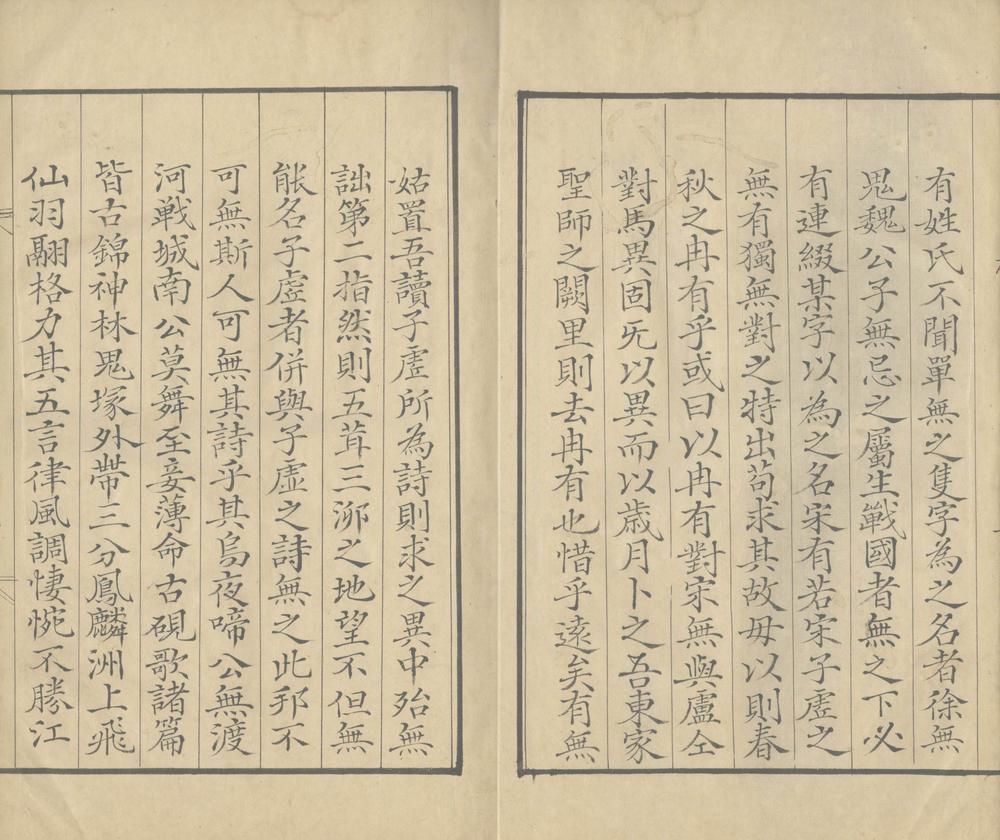 有姓氏不聞單無之隻字為之名者徐無
鬼魏公子無忌之屬生戰國者無之下必
有連綴某字以為之名宋有若宋子虛之
無有獨無對之特出苟求其故毋以則春
秋之冉有乎或曰以冉有對宋無與盧仝
對馬異固旡以異而以歳月卜之吾東家
聖師之闕里則去冉有也惜乎遠矣有無
姑置吾讀子虛所為詩則求之異中殆無
詘第二指然則五茸三泖之地望不但無
能名子虛者併與子虛之詩無之此邦不
可無斯人可無其詩乎其烏夜啼公無渡
河戦城南公莫舞至妾薄命古硯歌諸篇
皆古錦神林鬼塚外帶三分鳳麟洲上飛
仙羽翮格力其五言律風調悽惋不勝江